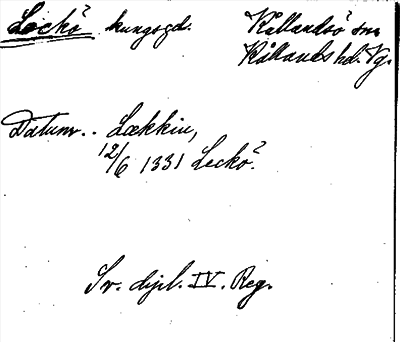 Leckö kungsgd. Kållandsö sn.
Kållands hd. Vg.
Datum.. Lækkiu,
12/6 1331 Leckö.
Sv. dipl. IV. Reg.